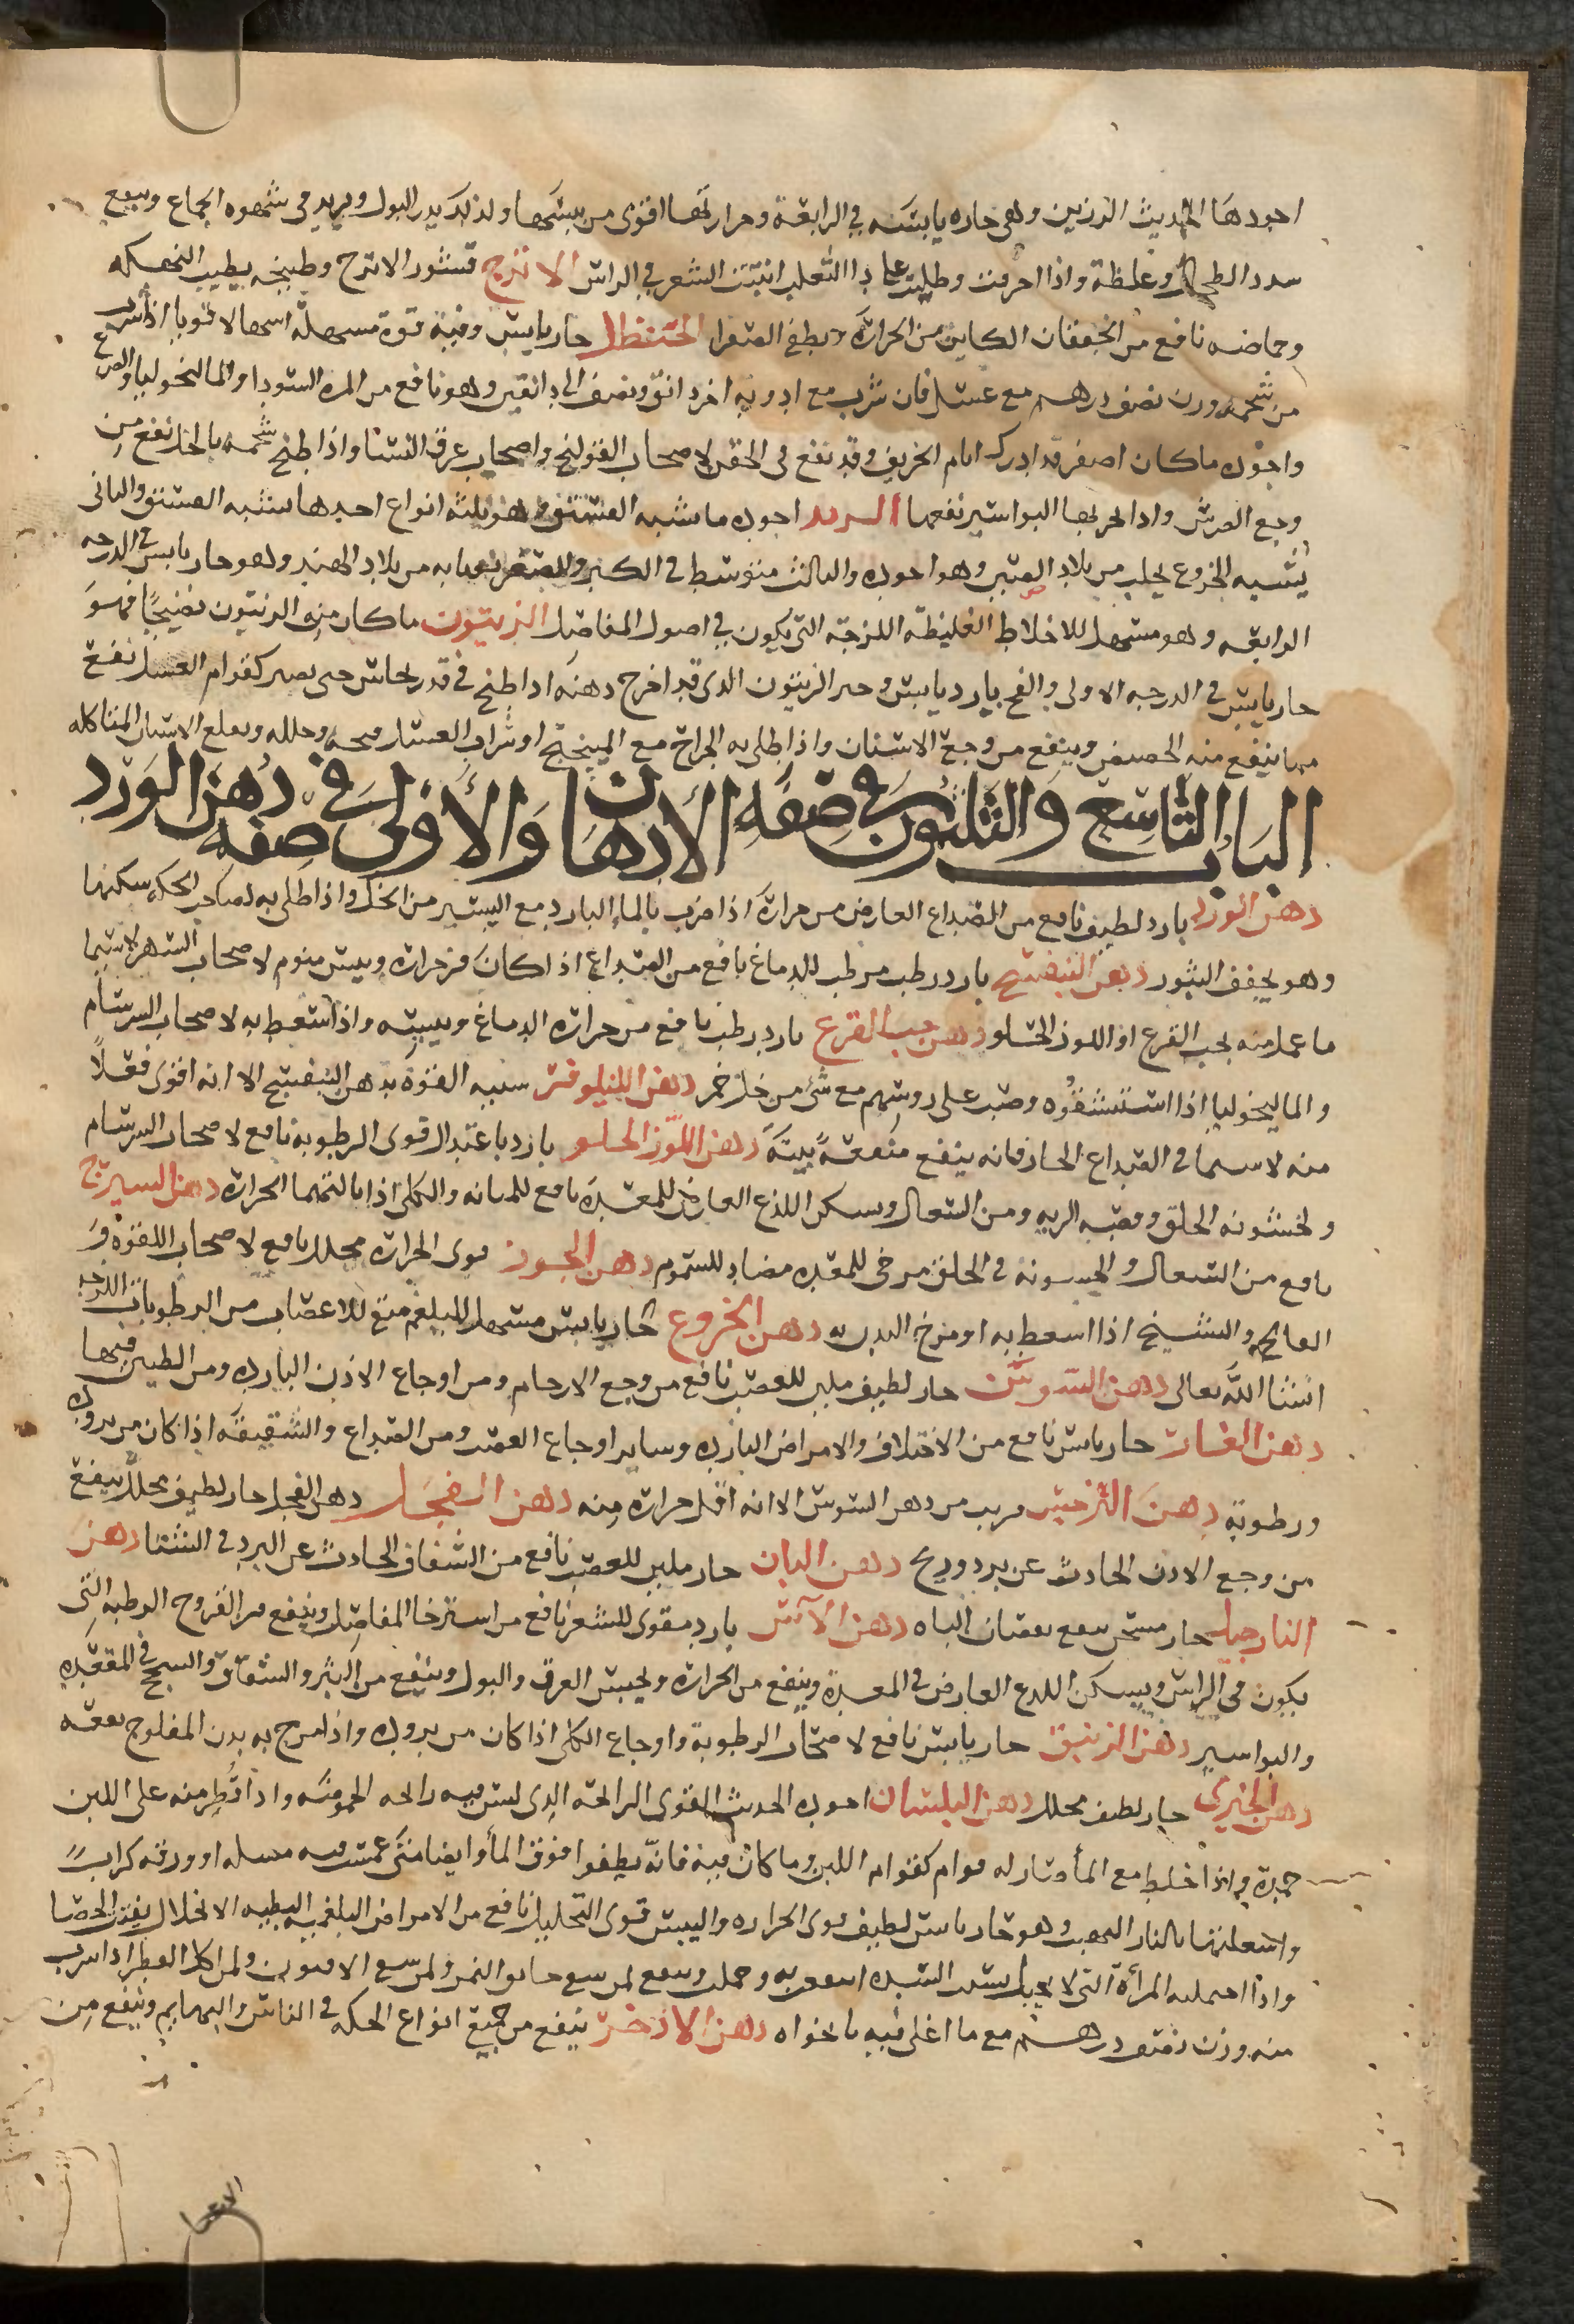 اجودها الحديث الرزين وهي حاره يابسه في الرابعة وحرارتها اقوى من يبسها ولذلك يدر البول ويزيد في شهوه الجماع وينفع
سدد الطحال وغلظة واذا احرقت وطليت على دا الثعلب انبتت الشعر في الراس الاترج قشور الاترج وطبيخه يطيب النهكه
وحماضه نافع من الخفقان الكاين من الحرارة ويطفي الصفرا الحنظل حار يابس وفيه قوة مسهلة اسهالا قويا اذا شرب
من شحمه وزن نصف درهم مع عسل فان شرب مع ادويه اخر دانق ونصف الى دانقين وهو نافع من المره السودا والماليخوليا والصرع
واجوده ماكان اصفر قد ادرك ايام الخريف وقد ينفع في الحقن لاصحاب القولنج واصحاب عرق النسا واذا طبخ شحمه بالخل نفع من
وجع الضرس واذا بخر بها البواسير نفعها اجوده ما شبه الفستق وهو ثلثه انواع احدها يشبه الفستق والثاني
يشبه الخروع يجلب من بلاد الصين وهو اجوده والثالث متوسط في الكبر والصغر من بلاد الهند وهو حار يابس في الدرجه
الرابعه وهو مسهل للاخلاط الغليظة اللزجة التي يكون في اصول المفاصل الزيتون ماكان من الزيتون نضيجًا فهو
حار يابس في الدرجه الاولى والفج بارد يابس الزيتون الذي قد اخرج دهنه اذا طبخ في قدر نحاس حتى يصير كقوام العسل نفع
مما ينفع منه الحضض وينفع من وجع الاسنان واذا طلي به الجراح مع الميبختج او شراب العسل وحلله ويقلع الاسنان المتاكله
الباب التاسع والثلثون في صفه الادهان والأولى في صفه دهن الورد
دهن الورد بارد لطيف نافع من الصداع العارض من حرارة اذا ضرب بالماء البارد مع اليسير من الخل واذا طلي به الحكه سكنها
وهو يجفف البثور دهن البنفسج بارد رطب مرطب للدماغ نافع من الصداع اذا كان من حراره ويبس منوم لاصحاب السهر لاسيما
ما عمل منه بحب القرع او اللوز الحلو دهن حب القرع بارد رطب نافع من حراره الدماغ ويبسه واذا استعط به لاصحاب السرسام
والماليخوليا اذا استنشقوه وصب على روسهم مع شي من خل خمر دهن النيلوفر شبيه القوة بدهن البنفسج الا انه اقوى فعلًا
منه لاسيما في الصداع الحار فانه ينفع منفعة بينة دهن اللوز الحلو بارد باعتدال قوى الرطوبه نافع لاصحاب السرسام
ولخشونه الحلق وقصبه الريه ومن السعال ويسكن اللذع العارض للمعدة نافع للمثانه والكلى اذا نالتهما الحرارة دهن السيرج
نافع من السعال والخشونه في الحلق مرخى للمعده مضاد للسموم دهن الجوز قوى الحرارة محلل نافع لاصحاب اللقوه و
الفالج والتشنج اذا اسعط به او مرخ البدن به دهن الخروع حار يابس مسهل للبلغم منق للاعصاب من الرطوبات اللزجه
انشا الله تعالى دهن السوسن حار لطيف ملين للعصب نافع من وجع الارحام ومن اوجاع الاذن البارده ومن الطنين فيها
دهن الغار حار يابس نافع من الاختلاف والامراض البارده وساير اوجاع العصب ومن الصداع والشقيقه اذا كان من بروده
ورطوبة دهن النرجس قريب من دهن السوسن الا انه اقل حراره منه دهن الفجل دهن الفجل حار لطيف محلل ينفع
من وجع الاذن الحادث عن برد وريح دهن البان حار ملين للعصب نافع من الشقاق الحادث عن البرد في الشتا دهن
النارجيل حار مسخن ينفع نقصان الباه دهن الآس بارد مقوى للشعر نافع من استرخا المفاصل وينفع من القروح الرطبه التي
يكون في الراس ويسكن اللذع العارض في المعدة وينفع من الحراره ويحبس العرق والبول وينفع من البثر والشقاق والسحج في المقعده
والبواسير دهن الزنبق حار يابس نافع لاصحاب الرطوبة واوجاع الكلى اذا كان من بروده واذا مرخ به بدن المفلوج نفعه
دهن الخيري حار لطيف محلل دهن البلسان اجوده الحديث القوى الرائحة الذي ليس فيه رائحه الحموضه واذا قطر منه على اللبن
جمده واذا خلط مع الماء صار له قوام كقوام اللبن وما كان فانه يطفوا فوق الماء وايضا متى غمست فيه مسله او ورقه كراث
واشعلتها بالنار التهبت وهو حار يابس لطيف قوى الحراره واليبس قوى التحليل نافع من الامراض البلغميه البطيه الانحلال يفتت الحصا
واذا احتملته المرأة التي لا يحبل انتفعت به وحملت وينفع لمن سقي الافيون ولمن اكل الفطر اذا شرب
منه وزن نصف درهم مع ما اغلي فيه نانخواه دهن الاذخر ينفع من جميع انواع الحكه في الناس والبهايم وينفع من